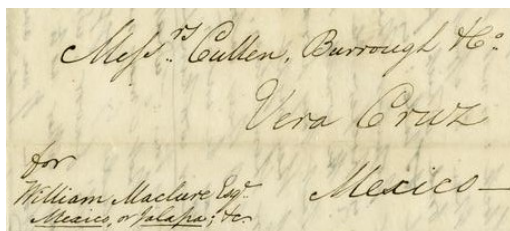 Messrs. Cullen, Burrough & Co.
Vera Cruz
Mexico—
for
William Maclure Esqr.
Mexico, or Jalapa; &c.